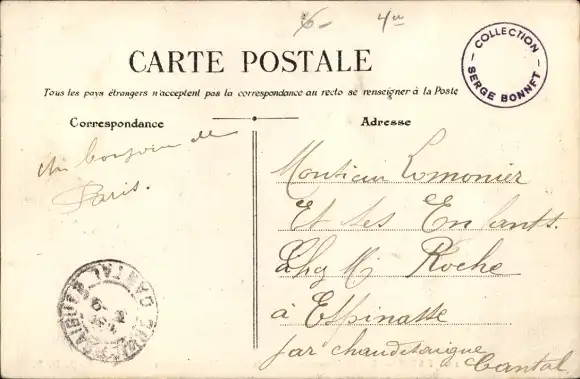 6- 4
COLLECTION
SERGE BONNET
CARTE POSTALE
Tous les pays étrangers n'acceptent pas la correspondance au recto se renseigner à la Poste
Correspondance
Adresse
un bonjour de
Paris.
Monsieur Lomonier
Et Ses Enfants.
Chez M Roche
à Espinasse
par chaudesaigue
Cantal
CANTAL